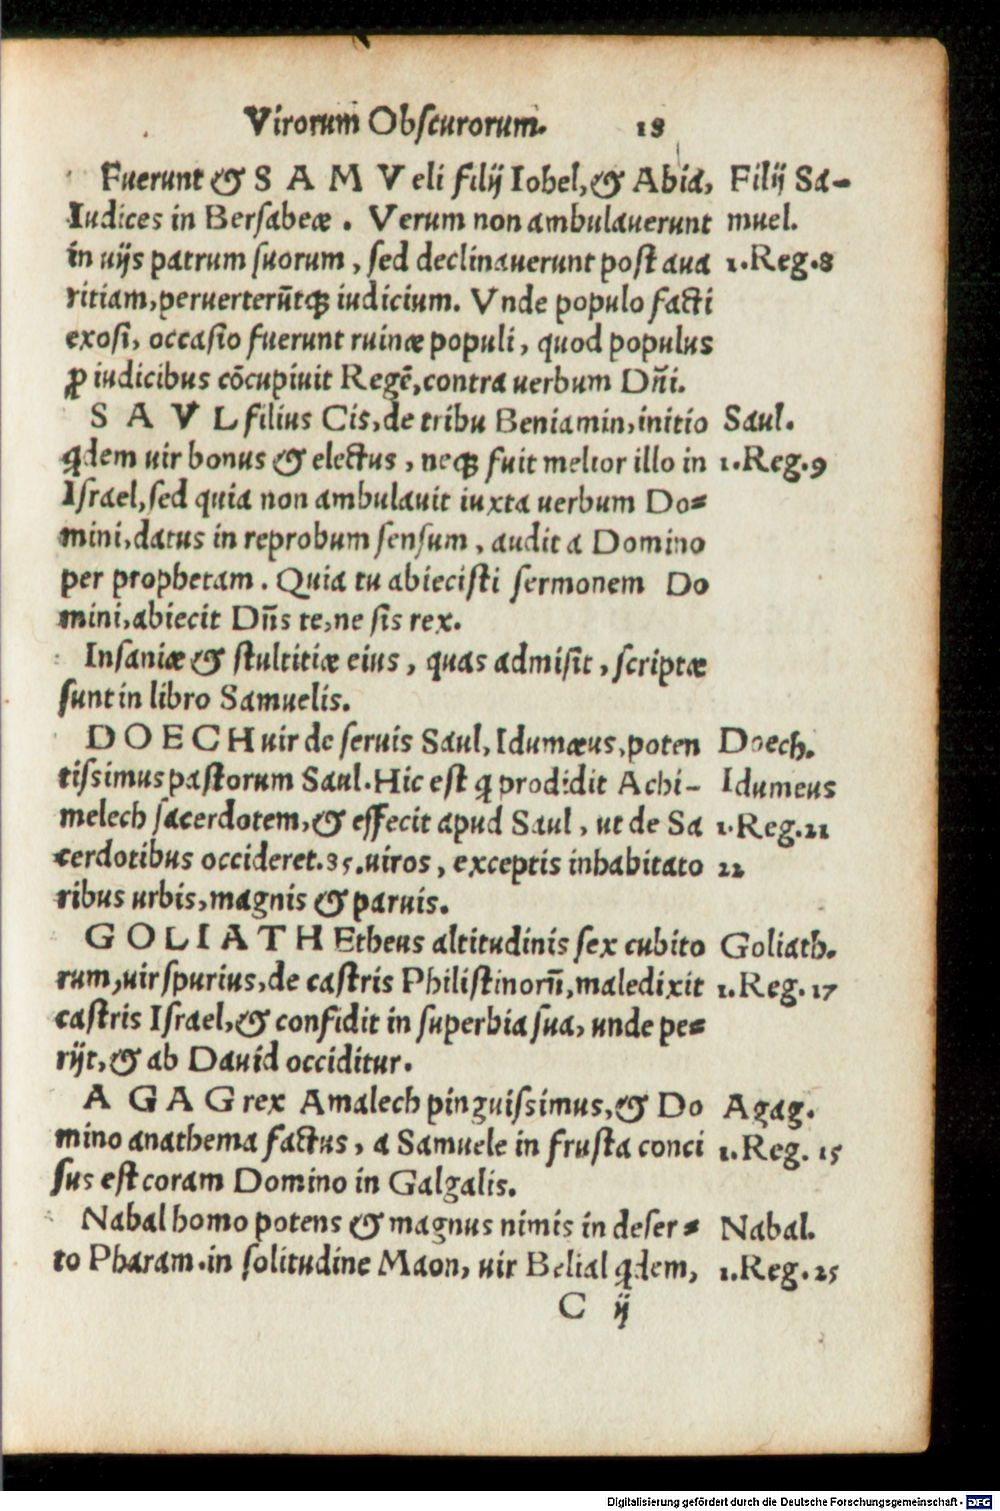 Virorum Obscurorum. 18
Fuerunt & S A M V eli filij Iobel, & Abia, Filij Sa-
Iudices in Bersabeæ. Verum non ambulauerunt muel.
in uijs patrum suorum, sed declinauerunt post aua 1. Reg. 8
ritiam, peruerterũtqꝫ iudicium. Vnde populo facti
exosi, occasio fuerunt ruinæ populi, quod populus
ꝓ iudicibus cōcupiuit Regē, contra uerbum Dñi.
S A V L filius Cis, de tribu Beniamin, initio Saul.
qdem uir bonus & electus, neqꝫ fuit melior illo in 1. Reg. 9
Israel, sed quia non ambulauit iuxta uerbum Do=
mini, datus in reprobum sensum, audit a Domino
per prophetam. Quia tu abiecisti sermonem Do
mini, abiecit Dñs te, ne sis rex.
Insaniæ & stultitiæ eius, quas admisit, scriptæ
sunt in libro Samuelis.
D O E C H uir de seruis Saul, Idumæus, poten Doech.
tissimus pastorum Saul. Hic est q prodidit Achi- Idumeus
melech sacerdotem, & effecit apud Saul, ut de Sa 1. Reg. 21
cerdotibus occideret. 85. uiros, exceptis inhabitato 22
ribus urbis, magnis & paruis.
G O L I A T H Etheus altitudinis sex cubito Goliath.
rum, uir spurius, de castris Philistinorũ, maledixit 1. Reg. 17
castris Israel, & confidit in superbia sua, unde pe=
rijt, & ab Dauid occiditur.
A G A G rex Amalech pinguissimus, & Do Agag.
mino anathema factus, a Samuele in frusta conci 1. Reg. 15
sus est coram Domino in Galgalis.
Nabal homo potens & magnus nimis in deser= Nabal.
to Pharam. in solitudine Maon, uir Belial qdem, 1. Reg. 25
C ij
Digitalisierung gefördert durch die Deutsche Forschungsgemeinschaft - DFG